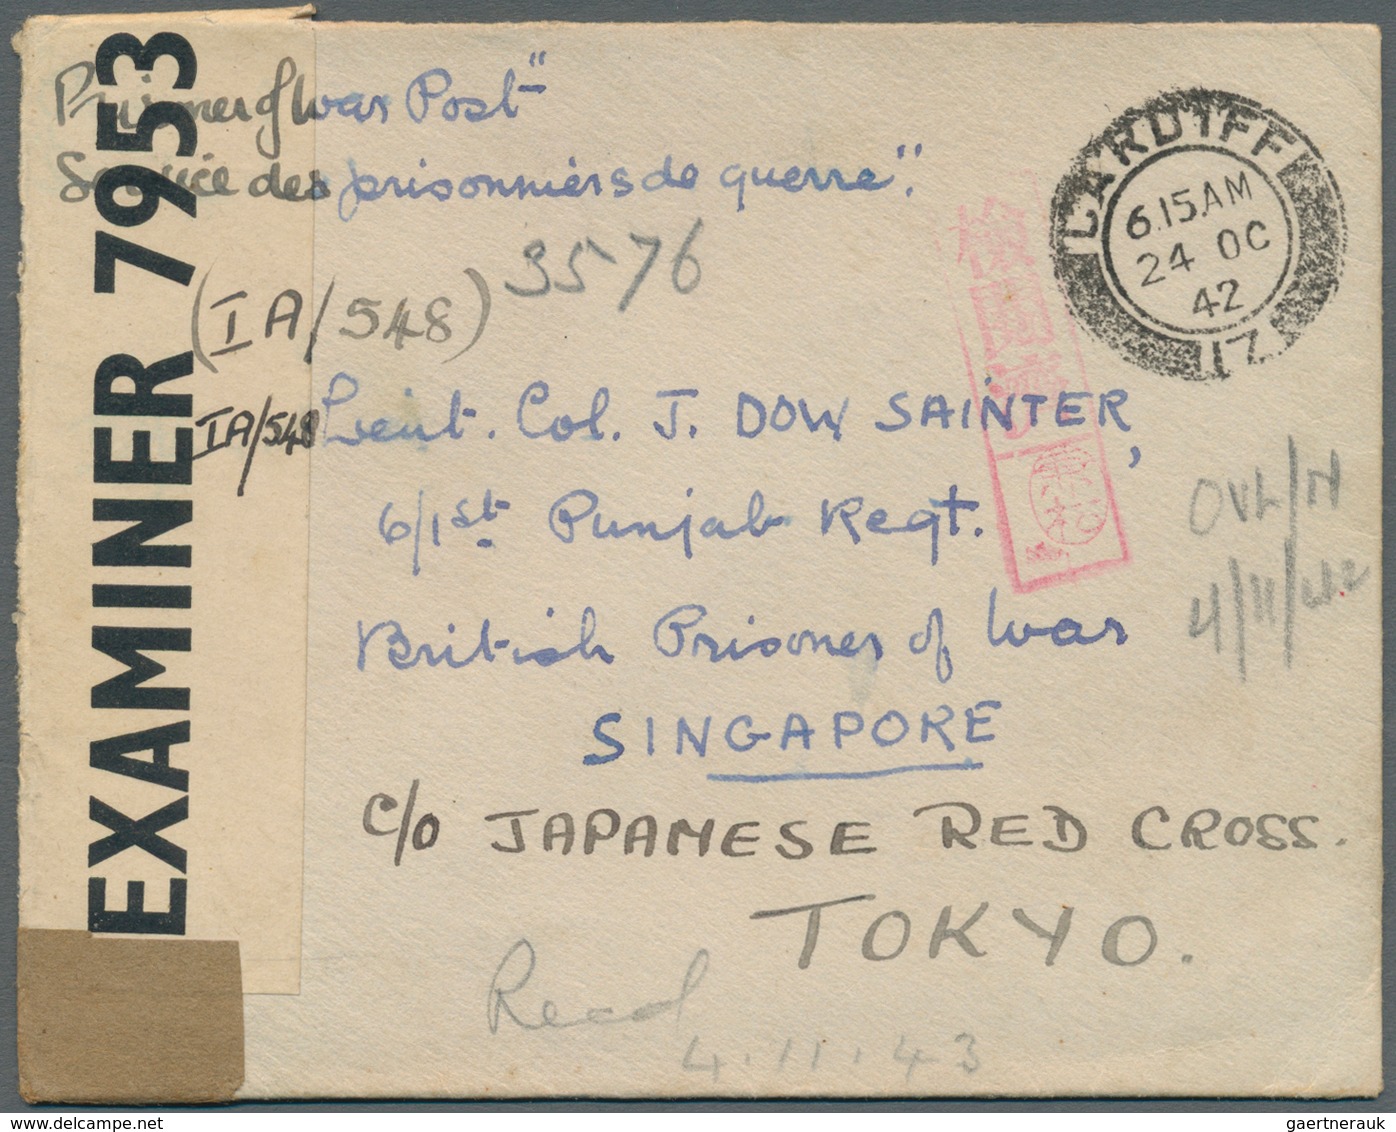 EXAMINER 7953
Prisoner of War Post"
Service des prisonniers de guerre".
CARDIFF
6.15AM
24 OC
42
(IA/548) 3576
IA/548 Lieut. Col. J. DOW SAINTER,
6/1st Punjab Regt.
British Prisoner of War
SINGAPORE
c/o JAPANESE RED CROSS.
TOKYO.
檢閲濟
4/11/42
Recd
4.11.43
gaertnerauk